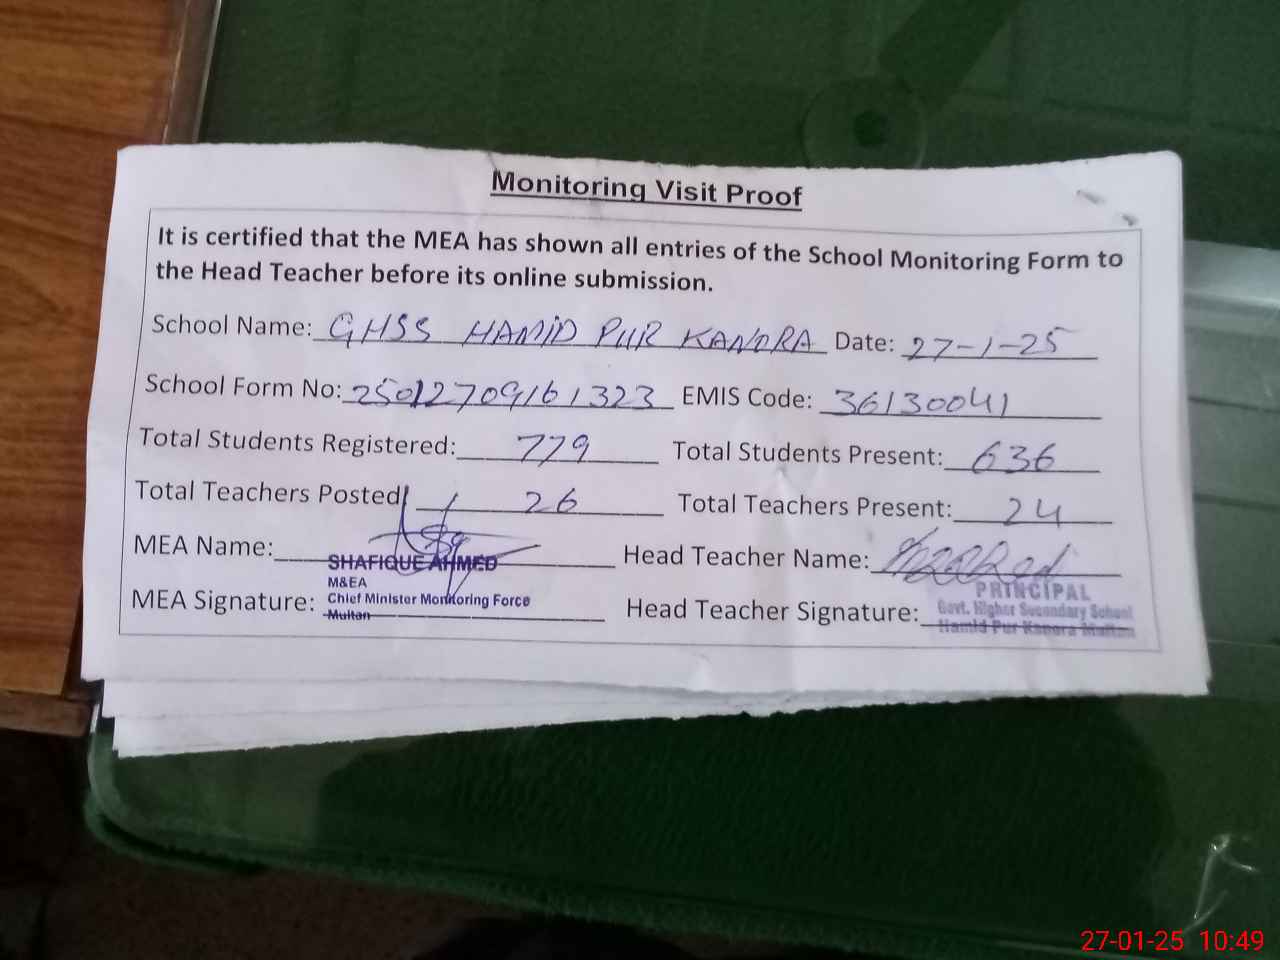 Monitoring Visit Proof
It is certified that the MEA has shown all entries of the School Monitoring Form to
the Head Teacher before its online submission.
School Name: GHSS HAMID PUR KANORA Date: 27-1-25
School Form No: 25012709161323 EMIS Code: 36130041
Total Students Registered: 779 Total Students Present: 636
Total Teachers Posted 26 Total Teachers Present: 24
MEA Name: Head Teacher Name:
SHAFIQUE AHMED
M&EA
Chief Minister Monitoring Force
Multan
MEA Signature: Head Teacher Signature:
PRINCIPAL
Govt. Higher Secondary School
Hamid Pur Kanora Multan
27-01-25 10:49